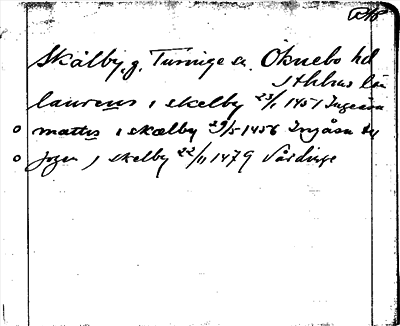 RA
Skälby, g. Turinge sn. Öknebo hd
Sthlms län
laurens i skelby 23/1 1451 Ingeson
mattis i skælby 29/5 1456
jogen i skelby 22/11 1479 Vårdinge